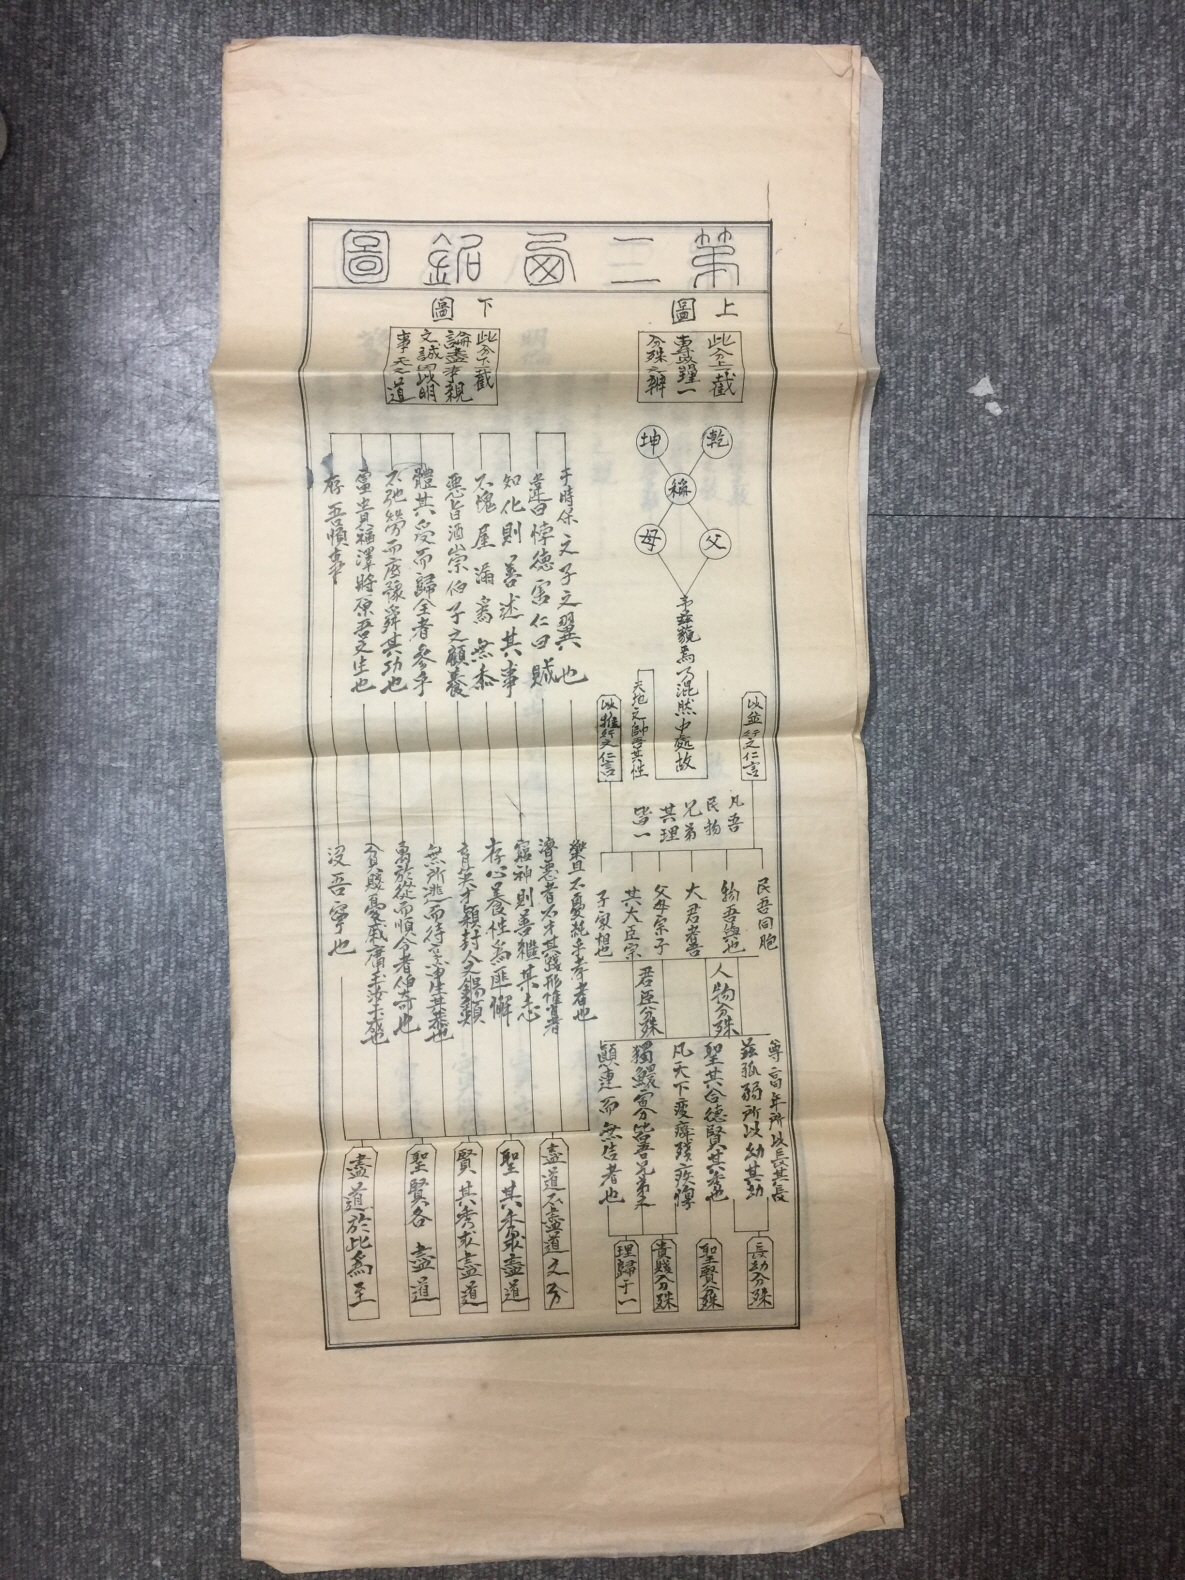 第二西銘圖
上圖
此分上一截
專以明理一
分殊之辨
乾
坤
稱
父
母
予茲藐焉乃混然中處故
天地之帥吾其性
以並行之仁言
以推行之仁言
凡吾
民物
兄弟
其理
皆一
民吾同胞
物吾與也
大君者吾
父母宗子
其大臣宗
子家相也
人物分殊
君臣分殊
尊高年所以長其長
慈孤弱所以幼其幼
聖其合德賢其秀也
凡天下疲癃殘疾惸
獨鰥寡皆吾兄弟之
顛連而無告者也
長幼分殊
聖賢分殊
貴賤分殊
理歸于一
下圖
此分下一截
論盡事親
之誠因以明
事天之道
于時保之子之翼也
違曰悖德害仁曰賊
知化則善述其事
不愧屋漏為無忝
惡旨酒崇伯子之顧養
不弛勞而底豫舜其功也
體其受而歸全者參乎
富貴福澤將厚吾之生也
存吾順事
樂且不憂純乎孝者也
濟惡者不才其踐形惟肖者
窮神則善繼其志
存心養性為匪懈
育英才穎封人之錫類
無所逃而待烹申生其恭也
勇於從而順令者伯奇也
貧賤憂戚庸玉汝于成也
沒吾寧也
盡道不盡道之分
聖其合德盡道
賢其秀求盡道
聖賢各盡道
盡道於此為至